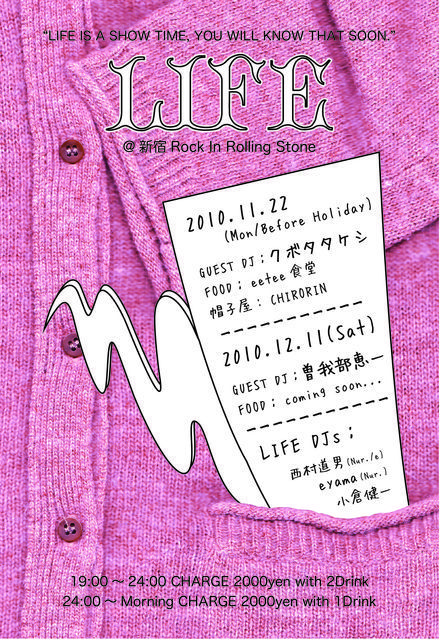 “LIFE IS A SHOW TIME, YOU WILL KNOW THAT SOON.”
LIFE
@ 新宿 Rock In Rolling Stone
2010.11.22
(Mon/Before Holiday)
GUEST DJ ; クボタタケシ
FOOD ; eetee 食堂
帽子屋 : CHIRORIN
2010.12.11(Sat)
GUEST DJ ; 曽我部恵一
FOOD ; coming soon...
LIFE DJs ;
西村道男 (Nur./e)
eyama (Nur.)
小倉健一
19:00 ～ 24:00 CHARGE 2000yen with 2Drink
24:00 ～ Morning CHARGE 2000yen with 1Drink